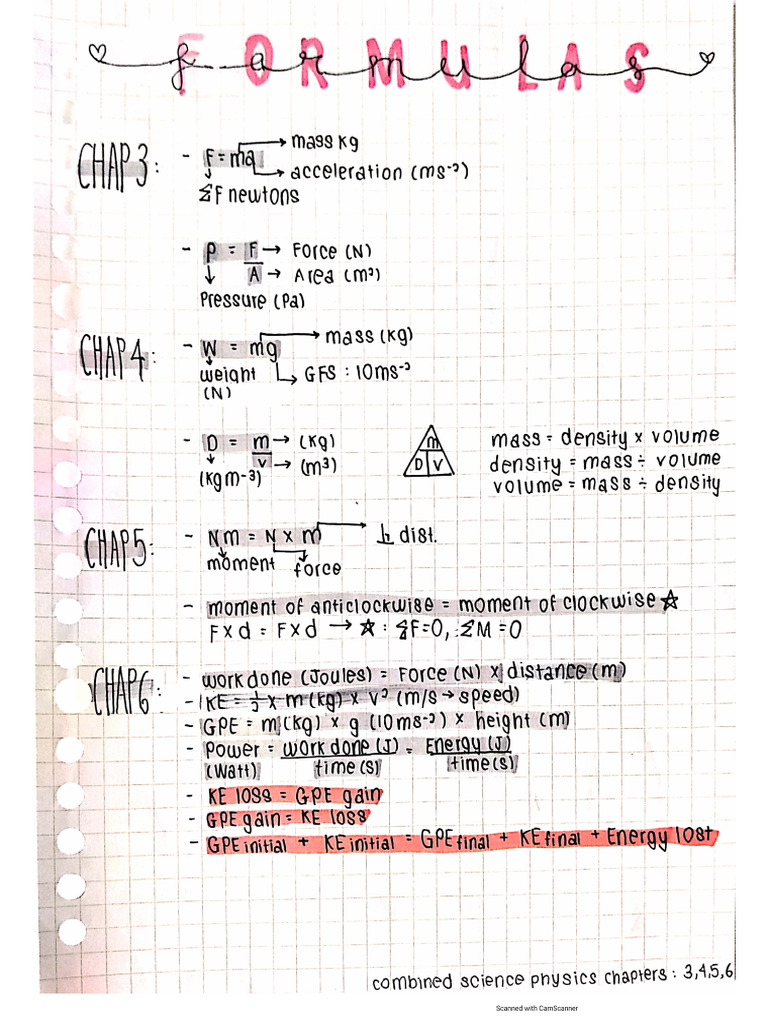 FORMULAS
formulas
CHAP 3: - F = ma → mass kg
→ acceleration (ms⁻²)
ΣF newtons
- P = F → Force (N)
A → Area (m²)
Pressure (Pa)
CHAP 4: - W = mg → mass (kg)
weight → GFS : 10ms⁻²
(N)
- D = m → (kg)
v → (m³)
(kgm⁻³)
m
D V
mass = density x volume
density = mass ÷ volume
volume = mass ÷ density
CHAP 5: - Nm = N x m → ⊥ dist.
moment force
- moment of anticlockwise = moment of clockwise ☆
F x d = F x d → ☆ : ΣF=0, ΣM=0
CHAP 6: - work done (Joules) = Force (N) x distance (m)
- KE = ½ x m (kg) x v² (m/s → speed)
- GPE = m (kg) x g (10ms⁻²) x height (m)
- Power = work done (J) = Energy (J)
(Watt) time (s) time (s)
- KE loss = GPE gain
- GPE gain = KE loss
- GPE initial + KE initial = GPE final + KE final + Energy lost
combined science physics chapters : 3,4,5,6
Scanned with CamScanner